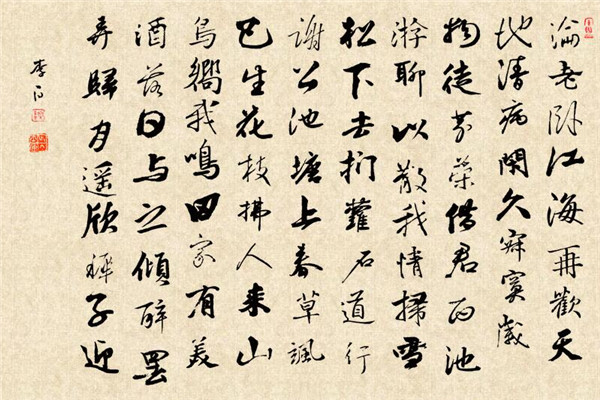 淪老卧江海再歡天
地清病閑久寂寞歲
物徒芬榮借君西池
游聊以散我情掃雪
松下去捫蘿石道行
謝公池塘上春草颯
已生花枝拂人來山
鳥嚮我鳴田家有美
酒落日与之傾醉罷
弄歸月遥欣稚子迎
李白